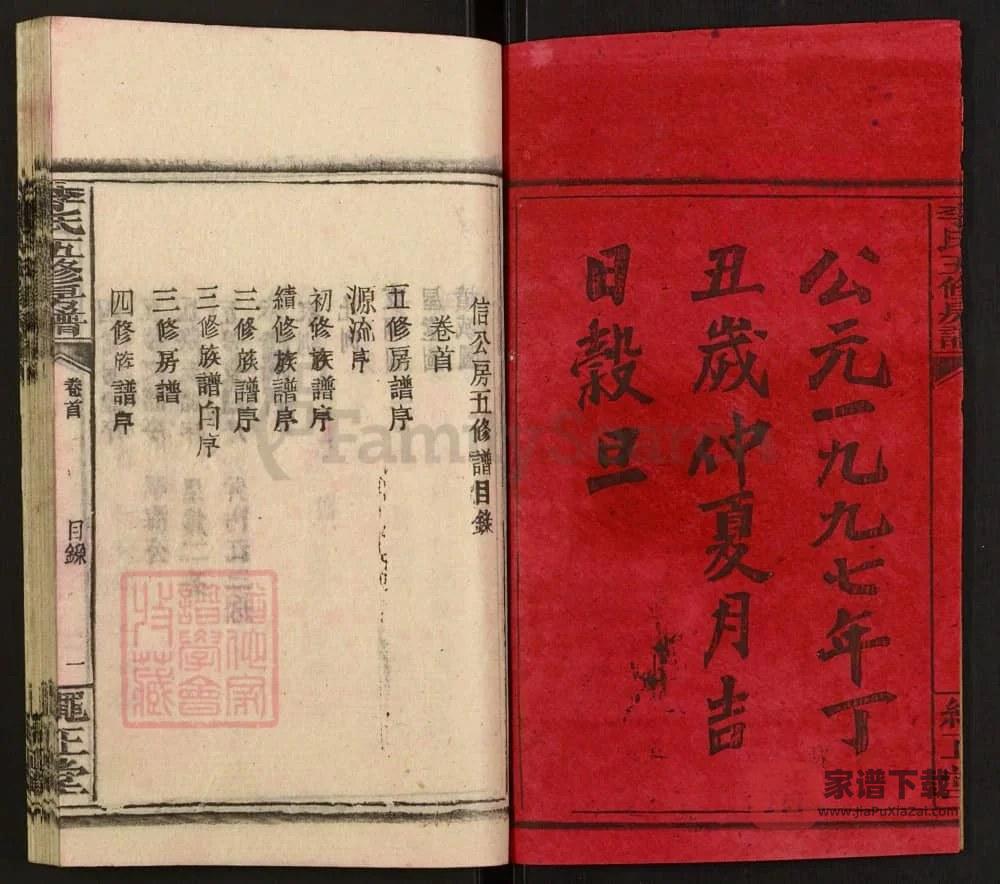 公元一九九七年丁
丑歲仲夏月吉
日穀旦
信公房五修譜目錄
卷首
五修房譜序
源流序
初修族譜序
續修族譜序
三修族譜序
三修族譜白序
三修房譜
四修族譜序
李氏五修房譜
卷首
目錄
一
李氏五修房譜
FamilySearch
收藏
家谱下载
www.JiaPuXiaZai.com